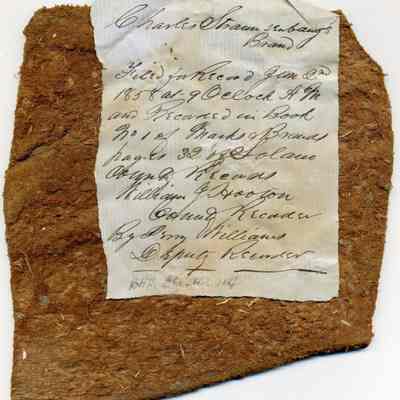 Charles
Brand
Filed for Record Jun 2d
1858 at 9 Oclock A M
and Recorded in Book
No 1 of Marks & Brands
pages 32 of Solano
County Records
William J Hooton
County Recorder
By Williams
Deputy Recorder